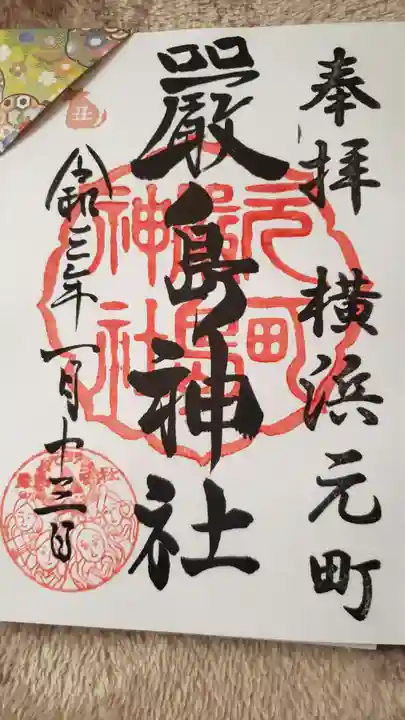 奉拝 横浜元町
嚴島神社
元町
嚴島
神社
丑
令和三年一月十三日